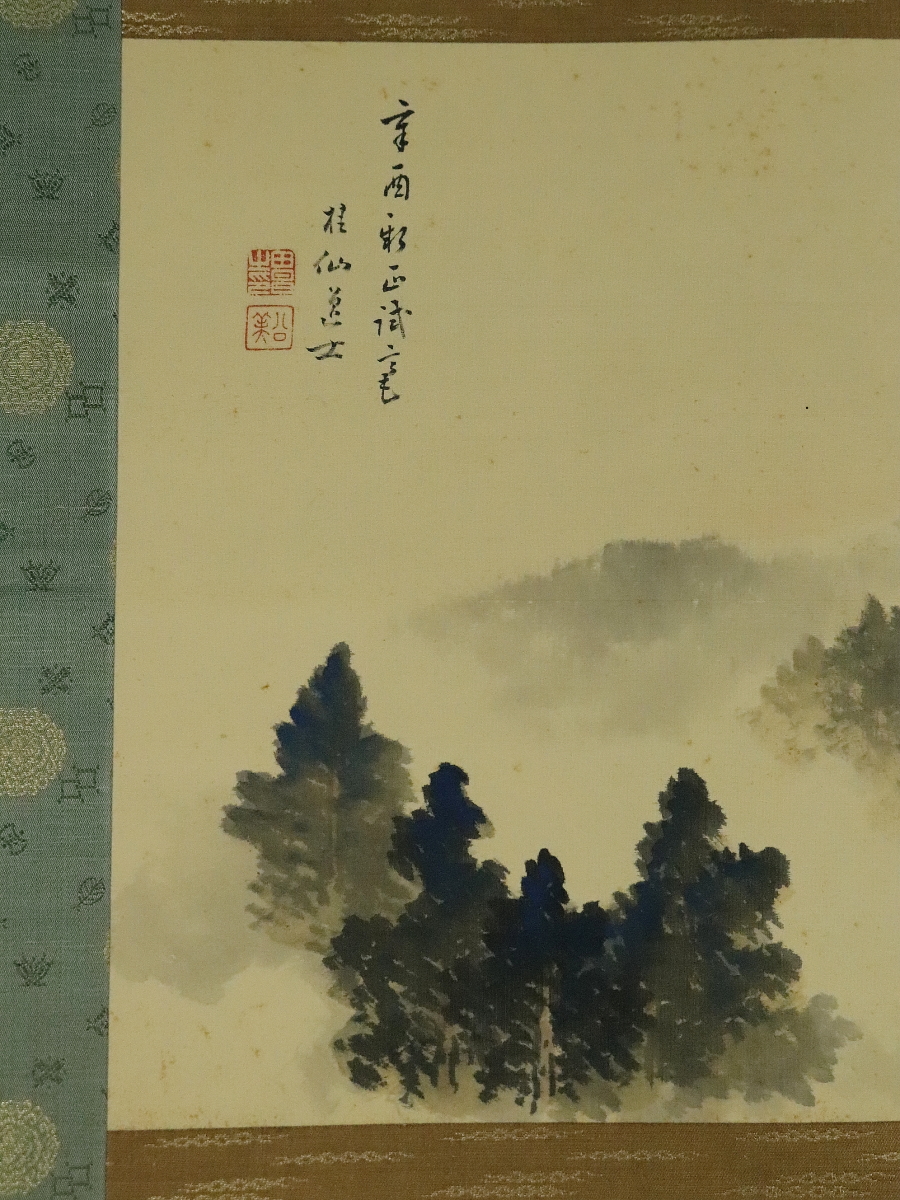 辛酉新正試毫
桂仙道士